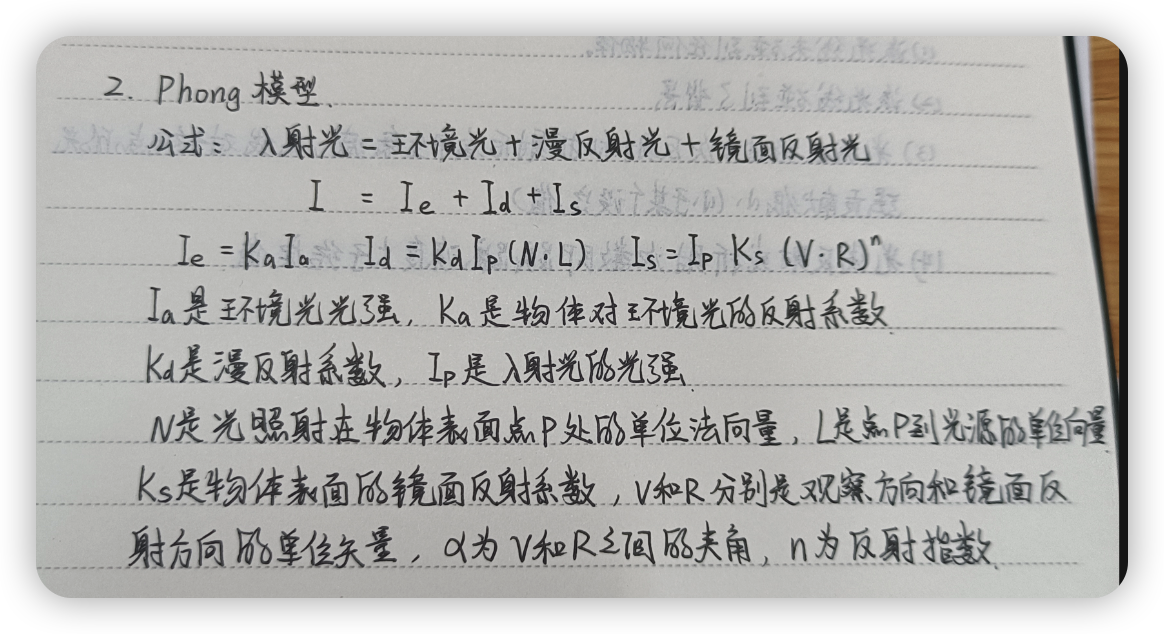 2. Phong 模型.
公式: 入射光 = 环境光 + 漫反射光 + 镜面反射光
I = Ie + Id + Is
Ie = KaIa Id = KdIp(N·L) Is = Ip Ks (V·R)^n
Ia是环境光光强, Ka是物体对环境光的反射系数
Kd是漫反射系数, Ip是入射光的光强
N是光照射在物体表面点P处的单位法向量, L是点P到光源的单位向量
Ks是物体表面的镜面反射系数, V和R分别是观察方向和镜面反
射方向的单位矢量, α为V和R之间的夹角, n为反射指数.